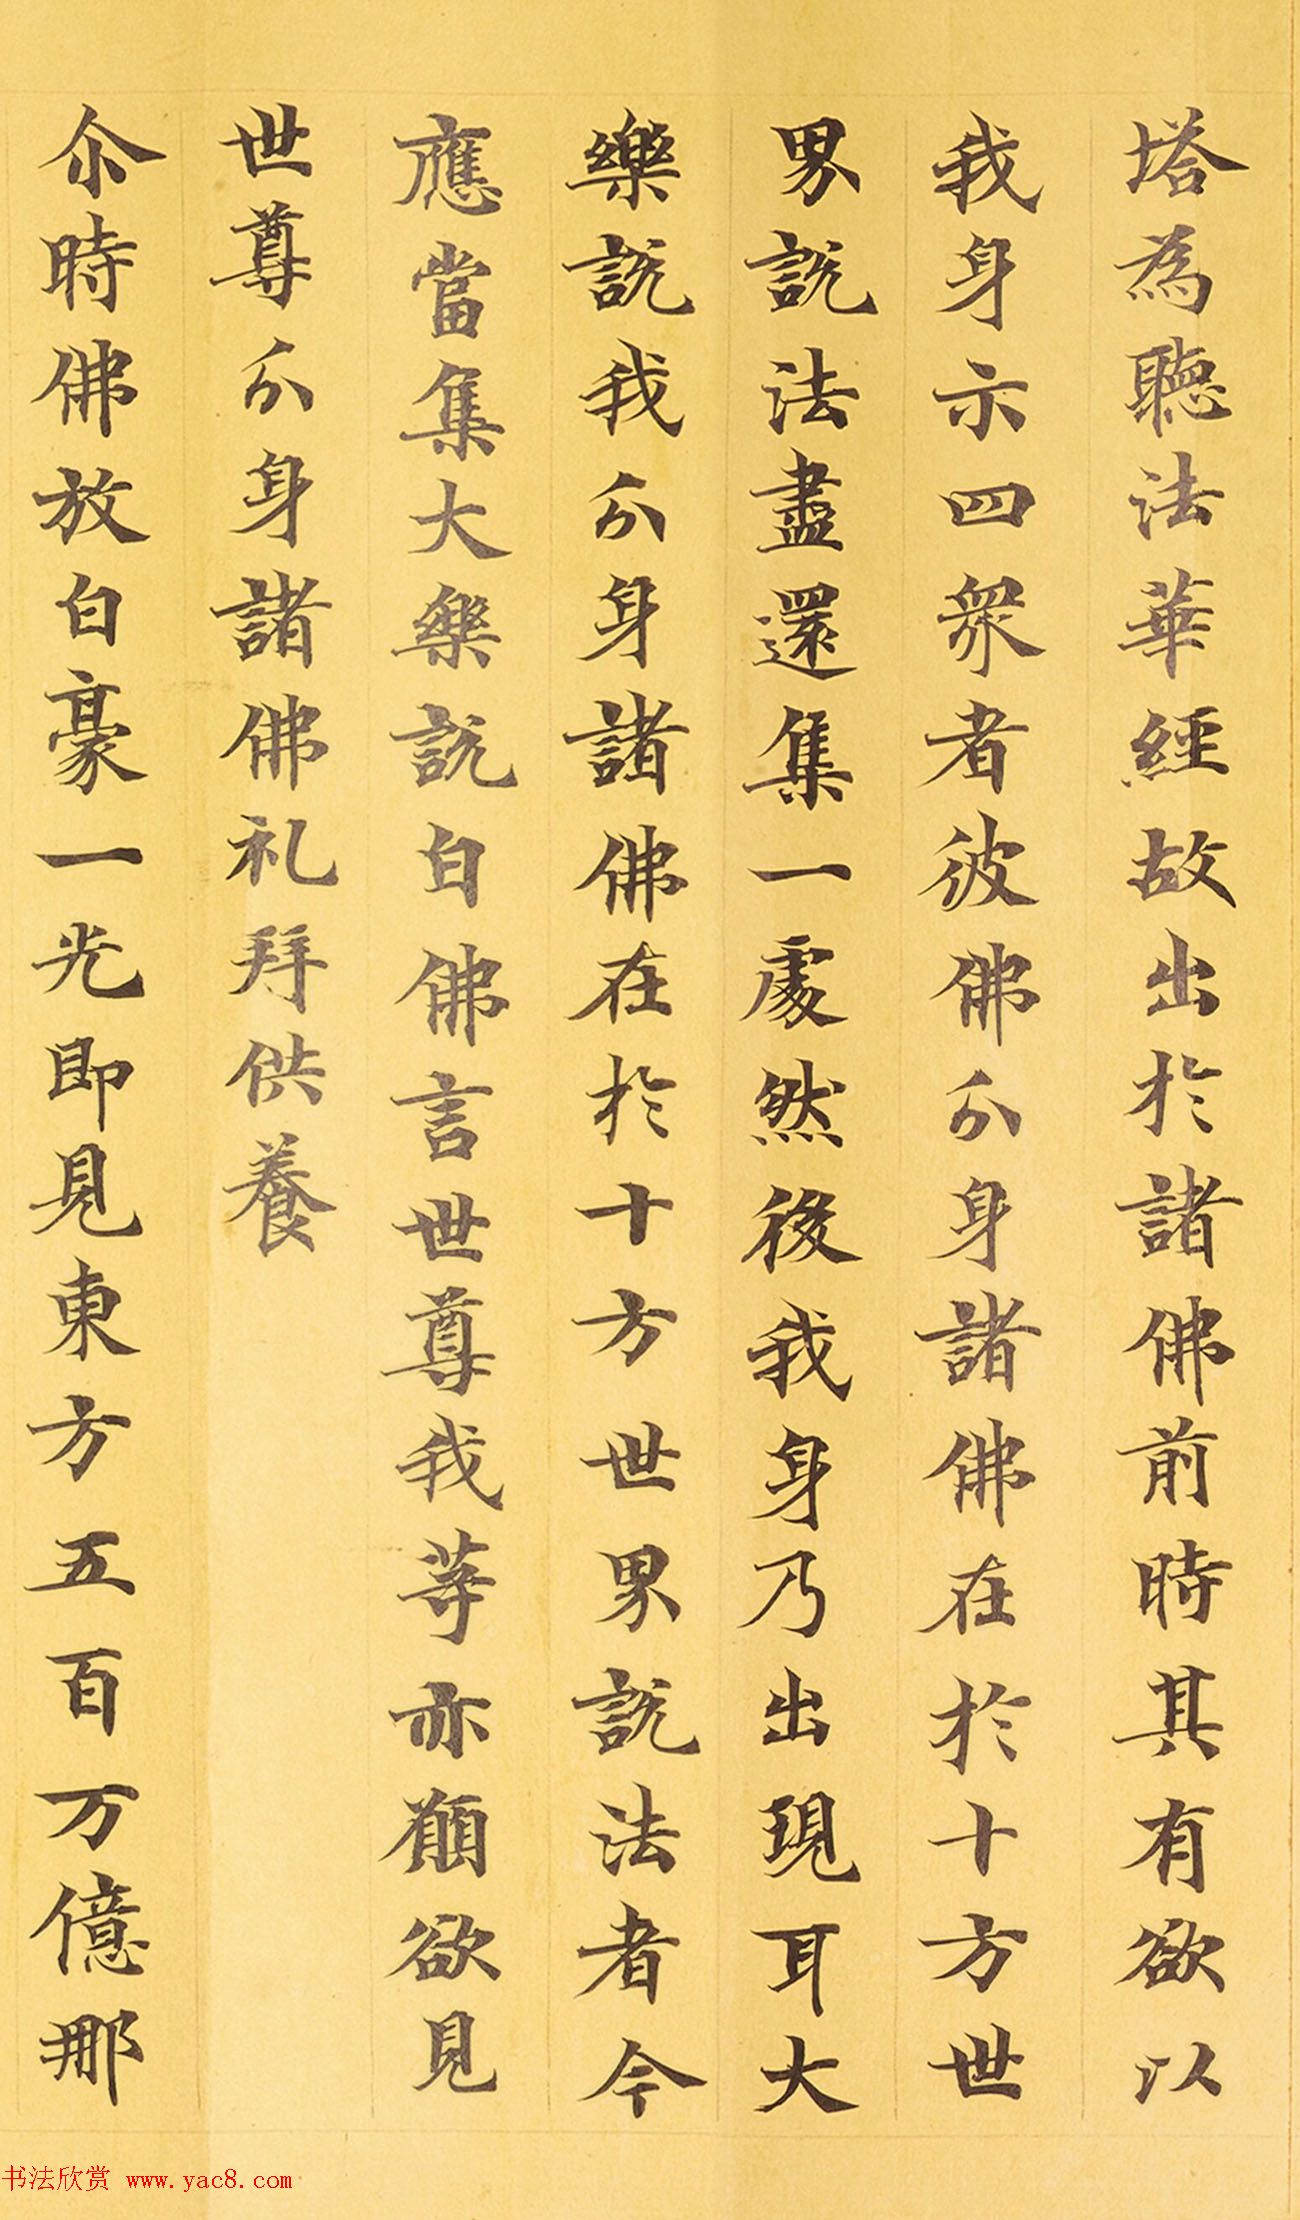 塔為聽法華經故出於諸佛前時其有欲以
我身示四眾者彼佛分身諸佛在於十方世
界說法盡還集一處然後我身乃出現耳大
樂說我分身諸佛在於十方世界說法者今
應當集大樂說白佛言世尊我等亦願欲見
世尊分身諸佛礼拜供養
尒時佛放白豪一光即見東方五百万億那
书法欣赏 www.yac8.com